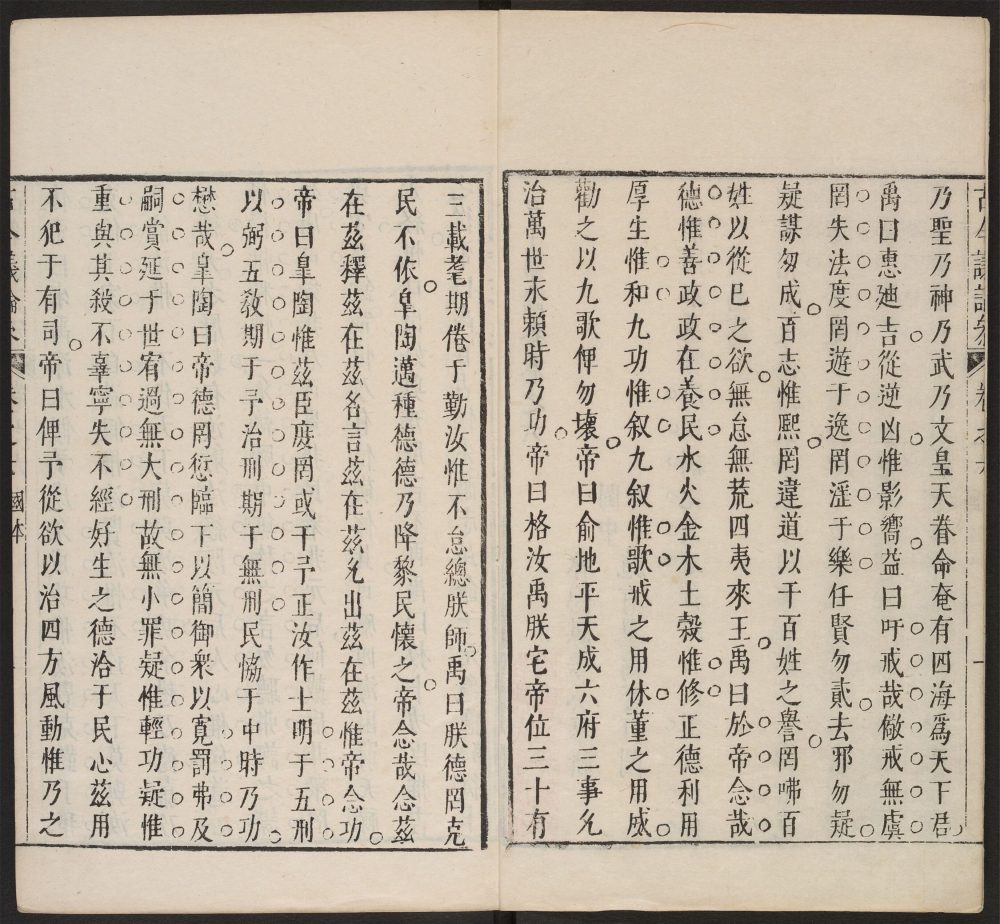 乃聖乃神乃武乃文皇天眷命奄有四海爲天下君
禹曰惠廸吉從逆凶惟影嚮益曰吁戒哉儆戒無虞
罔失法度罔遊于逸罔淫于樂任賢勿貳去邪勿疑
疑謀勿成百志惟熙罔違道以干百姓之譽罔咈百
姓以從已之欲無怠無荒四夷來王禹曰於帝念哉
德惟善政政在養民水火金木土榖惟修正德利用
厚生惟和九功惟叙九叙惟歌戒之用休董之用威
勸之以九歌俾勿壞帝曰俞地平天成六府三事允
治萬世永頼時乃功帝曰格汝禹朕宅帝位三十有
三載耄期倦于勤汝惟不怠總朕師禹曰朕德罔克
民不依臯陶邁種德德乃降黎民懷之帝念哉念茲
在茲釋茲在茲名言茲在茲允出茲在茲惟帝念功
帝曰臯陶惟茲臣庶罔或干予正汝作士明于五刑
以弼五教期于予治刑期于無刑民恊于中時乃功
懋哉臯陶曰帝德罔愆臨下以簡御衆以寬罰弗及
嗣賞延于世宥過無大刑故無小罪疑惟輕功疑惟
重與其殺不辜寧失不經好生之德洽于民心茲用
不犯于有司帝曰俾予從欲以治四方風動惟乃之
國體